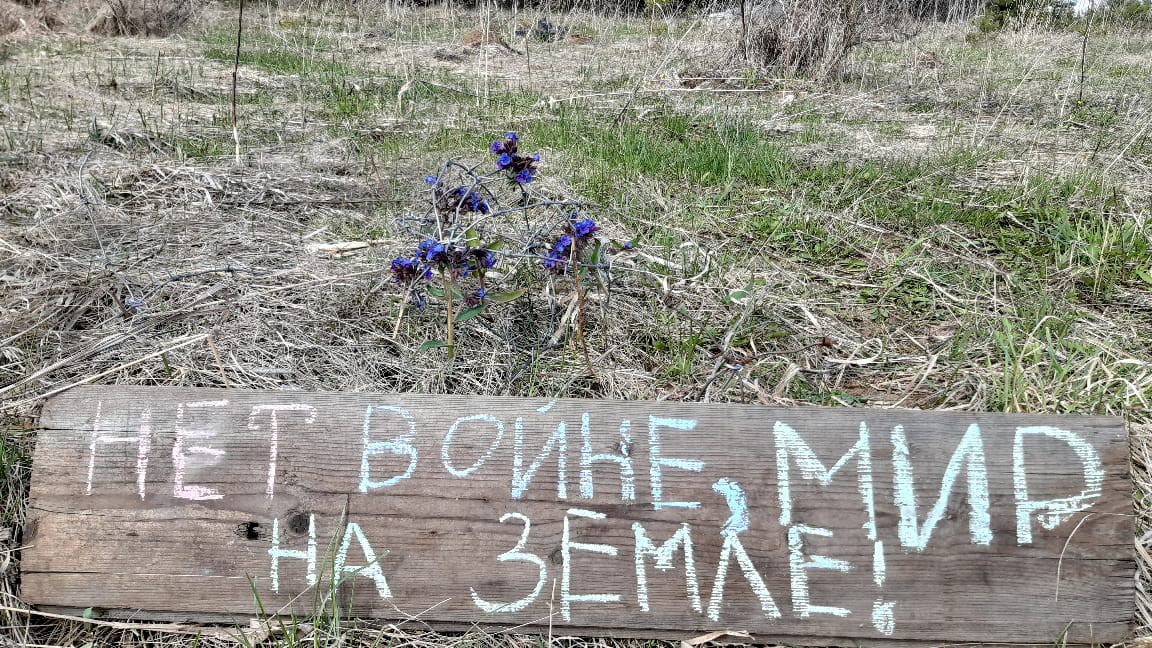 НЕТ ВОЙНЕ, МИР
НА ЗЕМЛЕ!